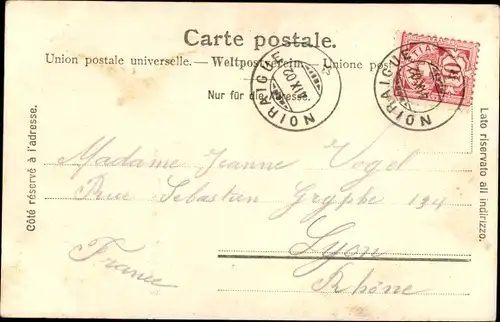 Carte postale.
Union postale universelle. — Weltpostverein. — Unione postale
Nur für die Adresse.
NOIRAIGUE
IX 02
NOIRAIGUE
10
Côté réservé à l'adresse.
Lato riservato all indirizzo.
Madame Jeanne Vogel
Rue Sebastien Gryphe 194
Lyon
France
Rhône